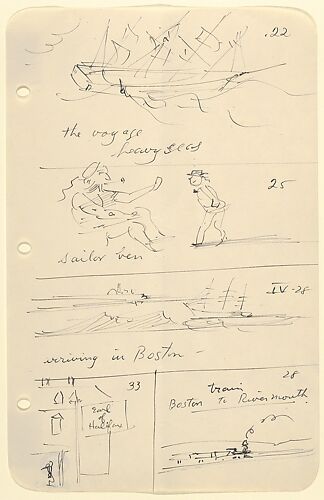 .22
the voyage
heavy seas
25
sailor ben
IV-28
arriving in Boston -
33
Earl
of
Halifax
28
train
Boston to Rivermouth